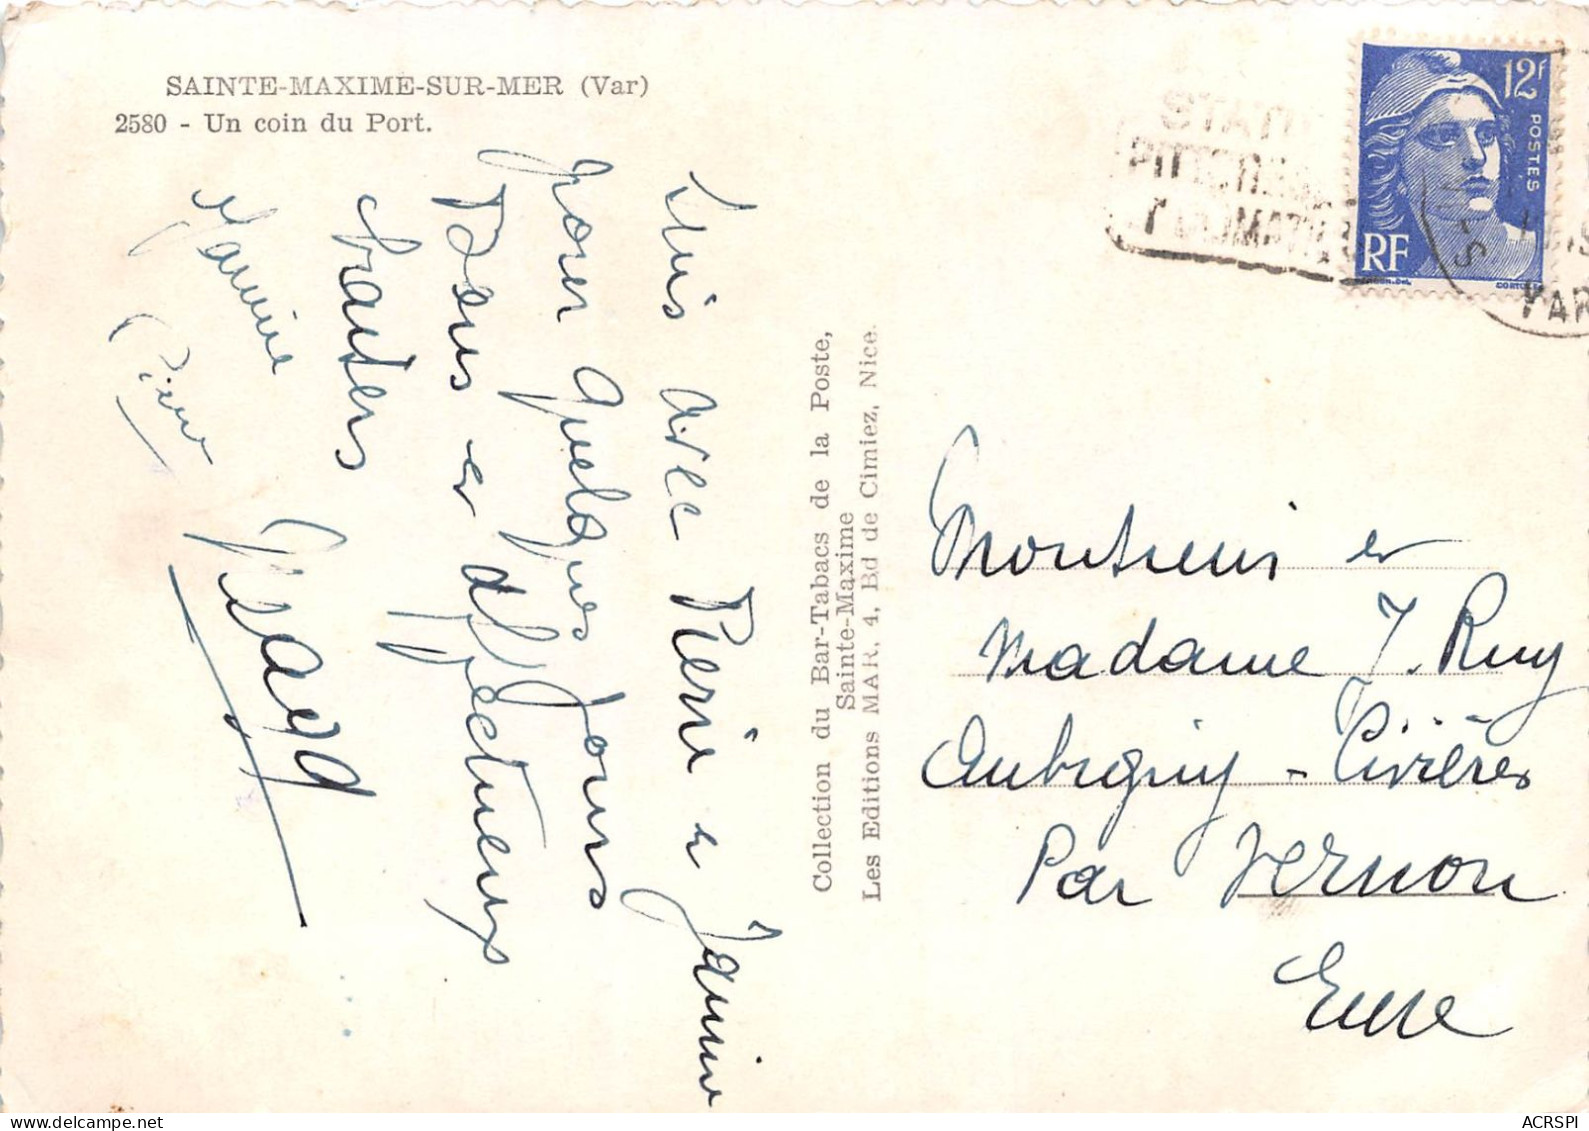 SAINTE-MAXIME-SUR-MER (Var)
2580 - Un coin du Port.
Suis avec Pierre et Janine
pour quelques jours
Bons et affectueux
baisers
Janine
Pierre
Collection du Bar-Tabacs de la Poste,
Sainte-Maxime
Les Editions MAR, 4, Bd de Cimiez, Nice.
12F
POSTES
RF
VAR
Monsieur et
Madame J. Ruy
Aubigny - Civières
Par Vernon
Eure
ACRSPI
www.delcampe.net